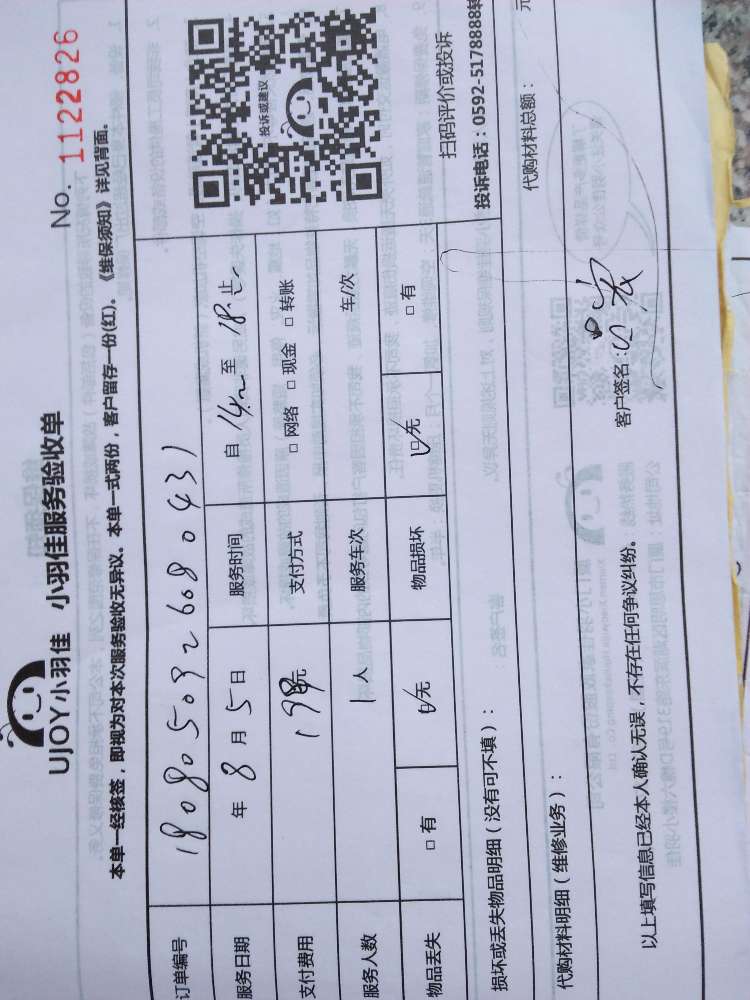 UJOY小羽佳 小羽佳服务验收单
No. 1122826
本单一经核签，即视为对本次服务验收无异议。本单一式两份，客户留存一份(红)。《维保须知》详见背面。
订单编号 1808050926080431
服务日期 年 8 月 5 日 服务时间 自 14 至 18 止
支付费用 198元 支付方式 □ 网络 □ 现金 □ 转账
服务人数 1 人 服务车次 车/次
物品丢失 □ 有 ☑无 物品损坏 ☑无 □ 有
投诉或建议
扫码评价或投诉
投诉电话：0592-5178888转
损坏或丢失物品明细（没有可不填）：
代购材料明细（维修业务）： 代购材料总额： 元
以上填写信息已经本人确认无误，不存在任何争议纠纷。 客户签名：